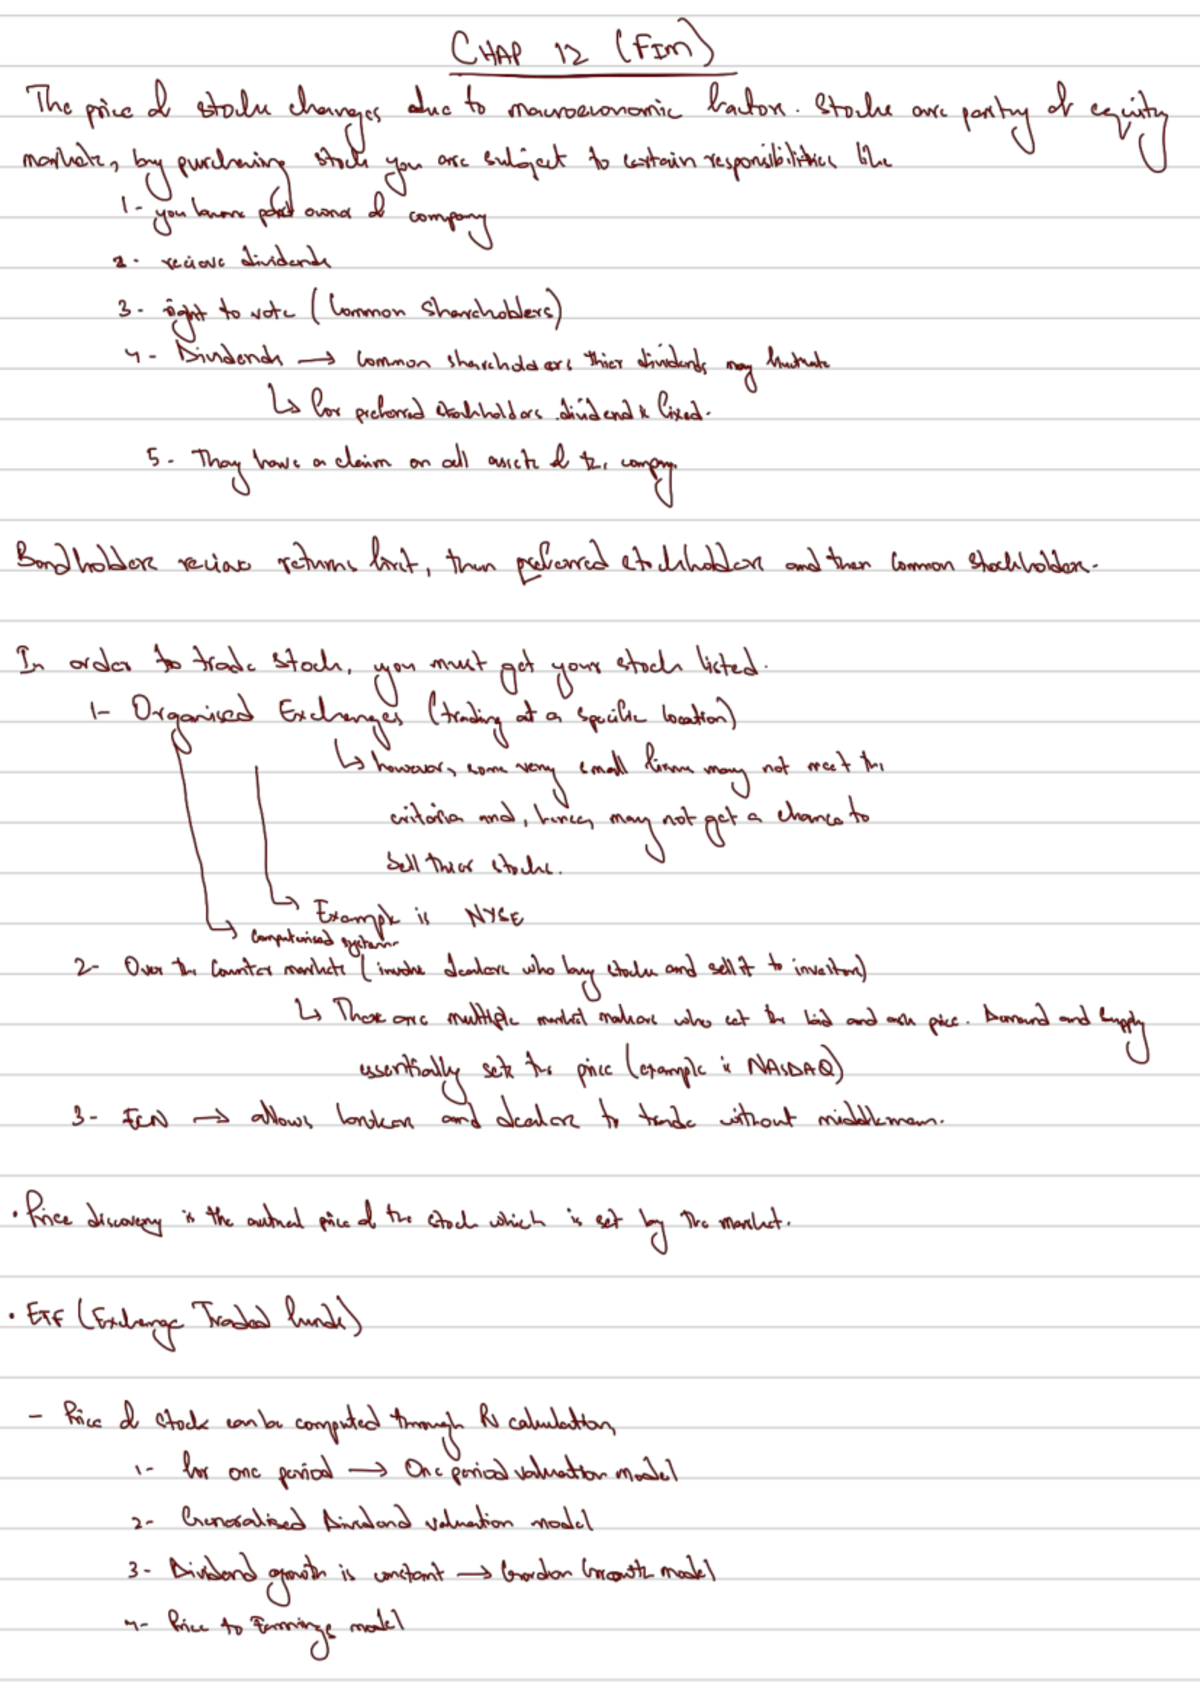 CHAP 12 (FIM)
The price of stocks changes due to macroeconomic factors. Stocks are party of equity
markets, by purchasing stock you are subject to certain responsibilities like
1- you become part owner of company
2- recieve dividends
3- right to vote (Common Shareholders)
4- Dividends → common shareholders thier dividends may fluctuate
↳ for preferred stockholders dividend is fixed.
5- They have a claim on all assets of the company.
Bondholders recieve returns first, then preferred stockholders and then common stockholders.
In order to trade stock, you must get your stock listed.
1- Organised Exchanges (trading at a specific location)
↳ however, some very small firms may not meet the
criteria and, hence, may not get a chance to
sell thier stocks.
↳ Example is NYSE
↳ Computerised systems
2- Over the Counter markets (involve dealers who buy stocks and sell it to investors)
↳ There are multiple market makers who set the bid and ask price. Demand and Supply
essentially sets the price (example is NASDAQ)
3- ECN → allows brokers and dealers to trade without middleman.
• Price discovery is the actual price of the stock which is set by the market.
• ETF (Exchange Traded funds)
- Price of stock can be computed through PV calculation,
1- for one period → One period valuation model
2- Generalised Dividend valuation model
3- Dividend growth is constant → Gordon Growth model
4- Price to Earnings model